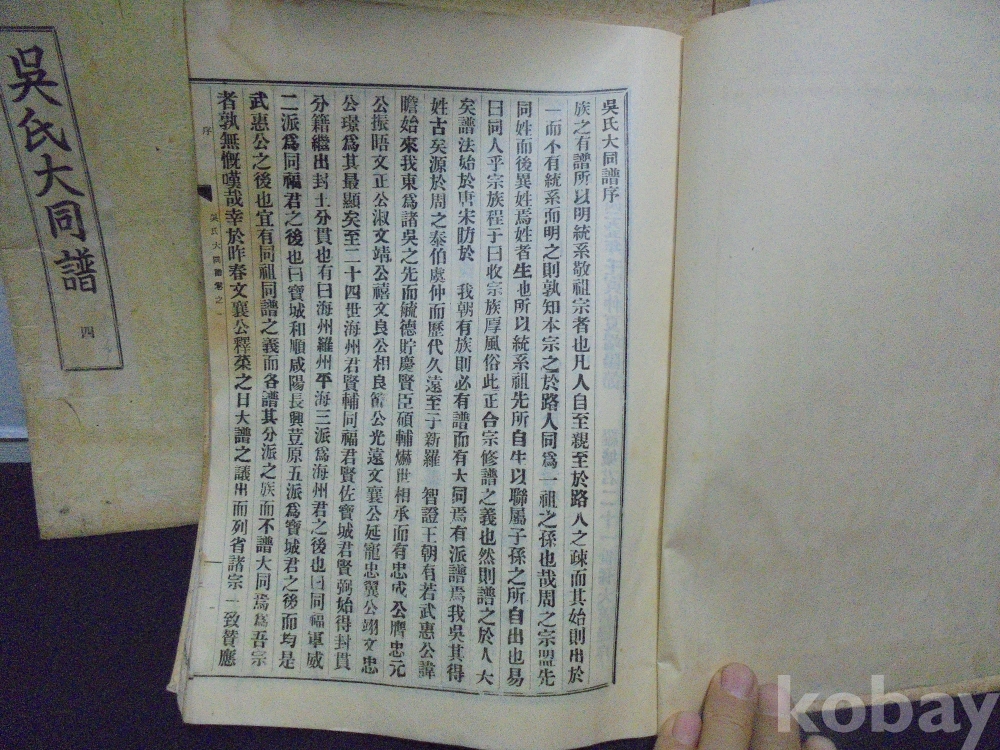 吳氏大同譜序
族之有譜所以明統系敬祖宗者也凡人自至親至於路人之疎而其始則出於
一而不有統系而明之則孰知本宗之於路人同爲一祖之孫也哉周之宗盟先
同姓而後異姓焉姓者生也所以統系祖先所自生以聯屬子孫之所自出也易
曰同人乎宗族程子曰收宗族厚風俗此正合宗修譜之義也然則譜之於人大
矣譜法始於唐宋昉於 我朝有族則必有譜而有大同焉有派譜焉我吳其得
姓古矣源於周之泰伯虞仲而歷代久遠至于新羅 智證王朝有若武惠公諱
瞻始來我東爲諸吳之先而毓德貯慶賢臣碩輔爀世相承而有忠成公膺忠元
公振晤文正公淑文靖公禧文良公相良公光遠文襄公延寵忠翼公翊文忠
公璟爲其最顯矣至二十四世海州君賢輔同福君賢佐寶城君賢弼始得封貫
分籍繼出封土分貫也有曰海州羅州平海三派爲海州君之後也曰同福軍威
二派爲同福君之後也曰寶城和順咸陽長興荳原五派爲寶城君之後而均是
武惠公之後也宜有同祖同譜之義而各譜其分派之族而不譜大同焉爲吾宗
者孰無慨嘆哉幸於昨春文襄公釋菜之日大譜之議出而列省諸宗一致贊應
序
吳氏大同譜卷之一
吳氏大同譜
四
kobay